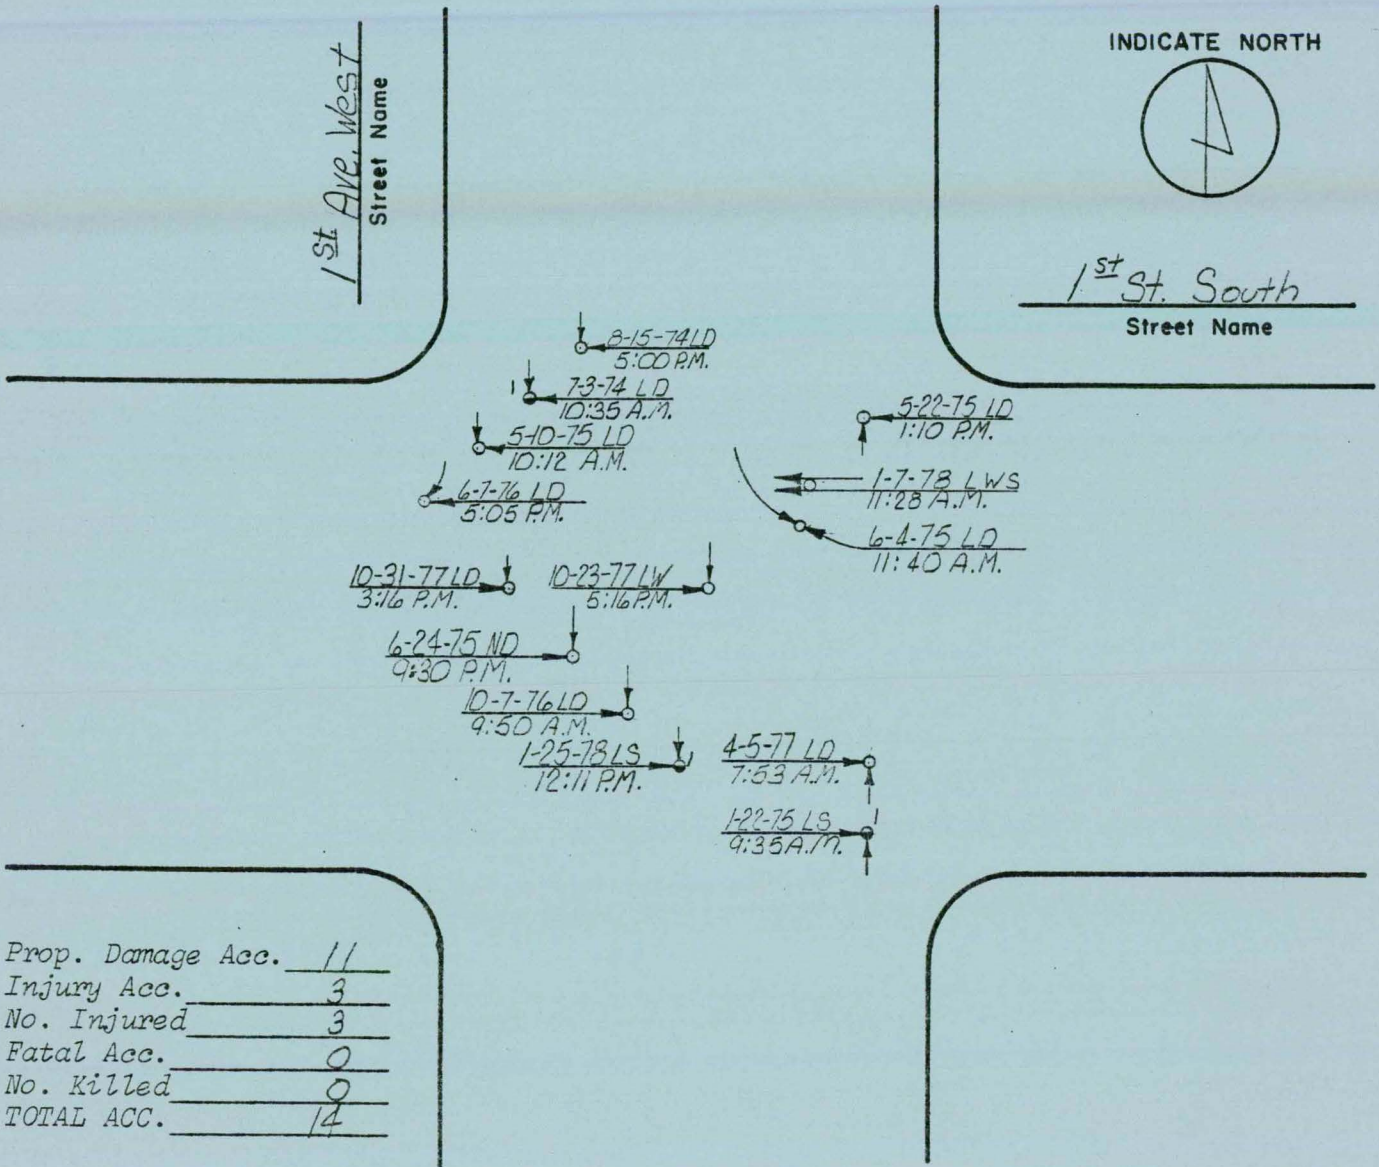 1st Ave. West
Street Name
INDICATE NORTH
1st St. South
Street Name
8-15-74 LD
5:00 P.M.
1 7-3-74 LD
10:35 A.M.
5-10-75 LD
10:12 A.M.
6-7-76 LD
5:05 P.M.
5-22-75 LD
1:10 P.M.
1-7-78 LWS
11:28 A.M.
6-4-75 LD
11:40 A.M.
10-31-77 LD
3:16 P.M.
10-23-77 LW
5:16 P.M.
6-24-75 ND
9:30 P.M.
10-7-76 LD
9:50 A.M.
1-25-78 LS 1
12:11 P.M.
4-5-77 LD
7:53 A.M.
1-22-75 LS 1
9:35 A.M.
Prop. Damage Acc. 11
Injury Acc. 3
No. Injured 3
Fatal Acc. 0
No. Killed 0
TOTAL ACC. 14